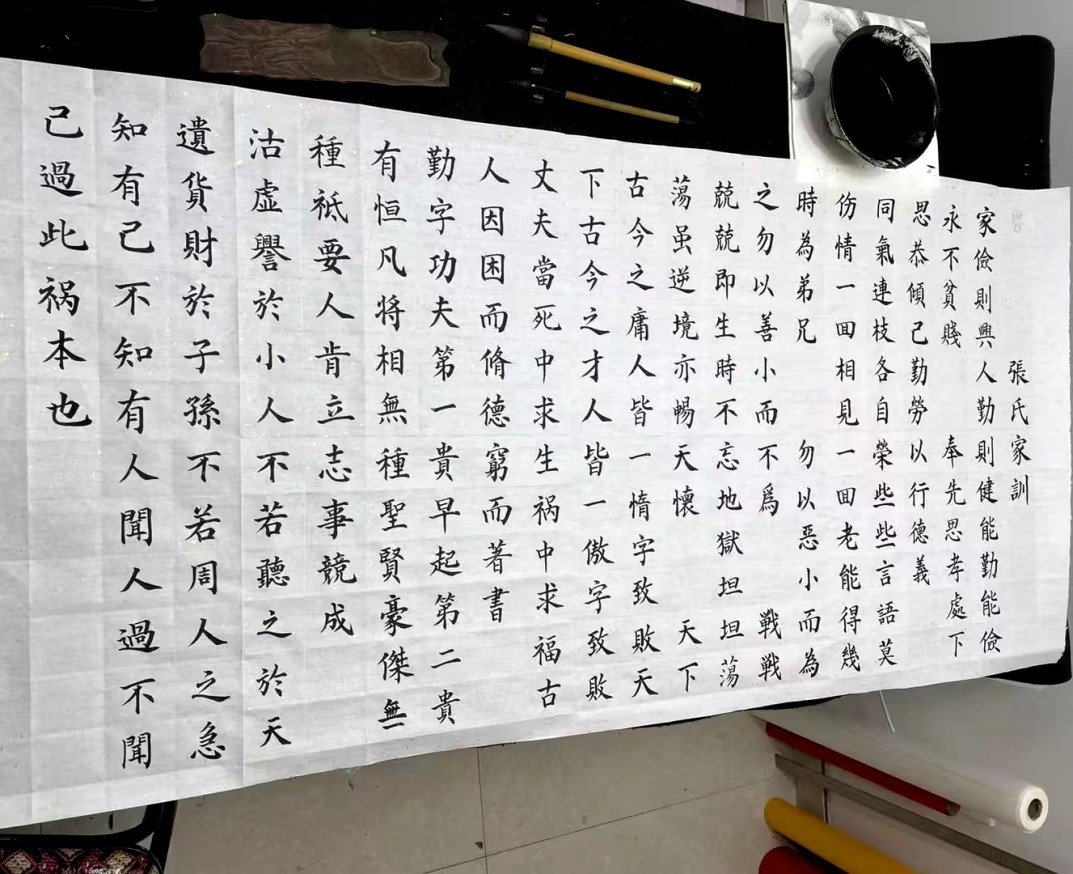 張氏家訓
家儉則興人勤則健能勤能儉
永不貧賤 奉先思孝處下
思恭傾己勤勞以行德義
同氣連枝各自榮些些言語莫
伤情一回相見一回老能得幾
時為弟兄 勿以惡小而為
之勿以善小而不爲 戰戰
兢兢即生時不忘地獄坦坦蕩
蕩虽逆境亦暢天懷 天下
古今之庸人皆一惰字致敗天
下古今之才人皆一傲字致敗
丈夫當死中求生祸中求福古
人因困而脩德窮而著書
勤字功夫第一貴早起第二貴
有恒凡将相無種聖賢豪傑無
種祇要人肯立志事競成
沽虛譽於小人不若聽之於天
遺貨財於子孫不若周人之急
知有己不知有人聞人過不聞
己過此祸本也